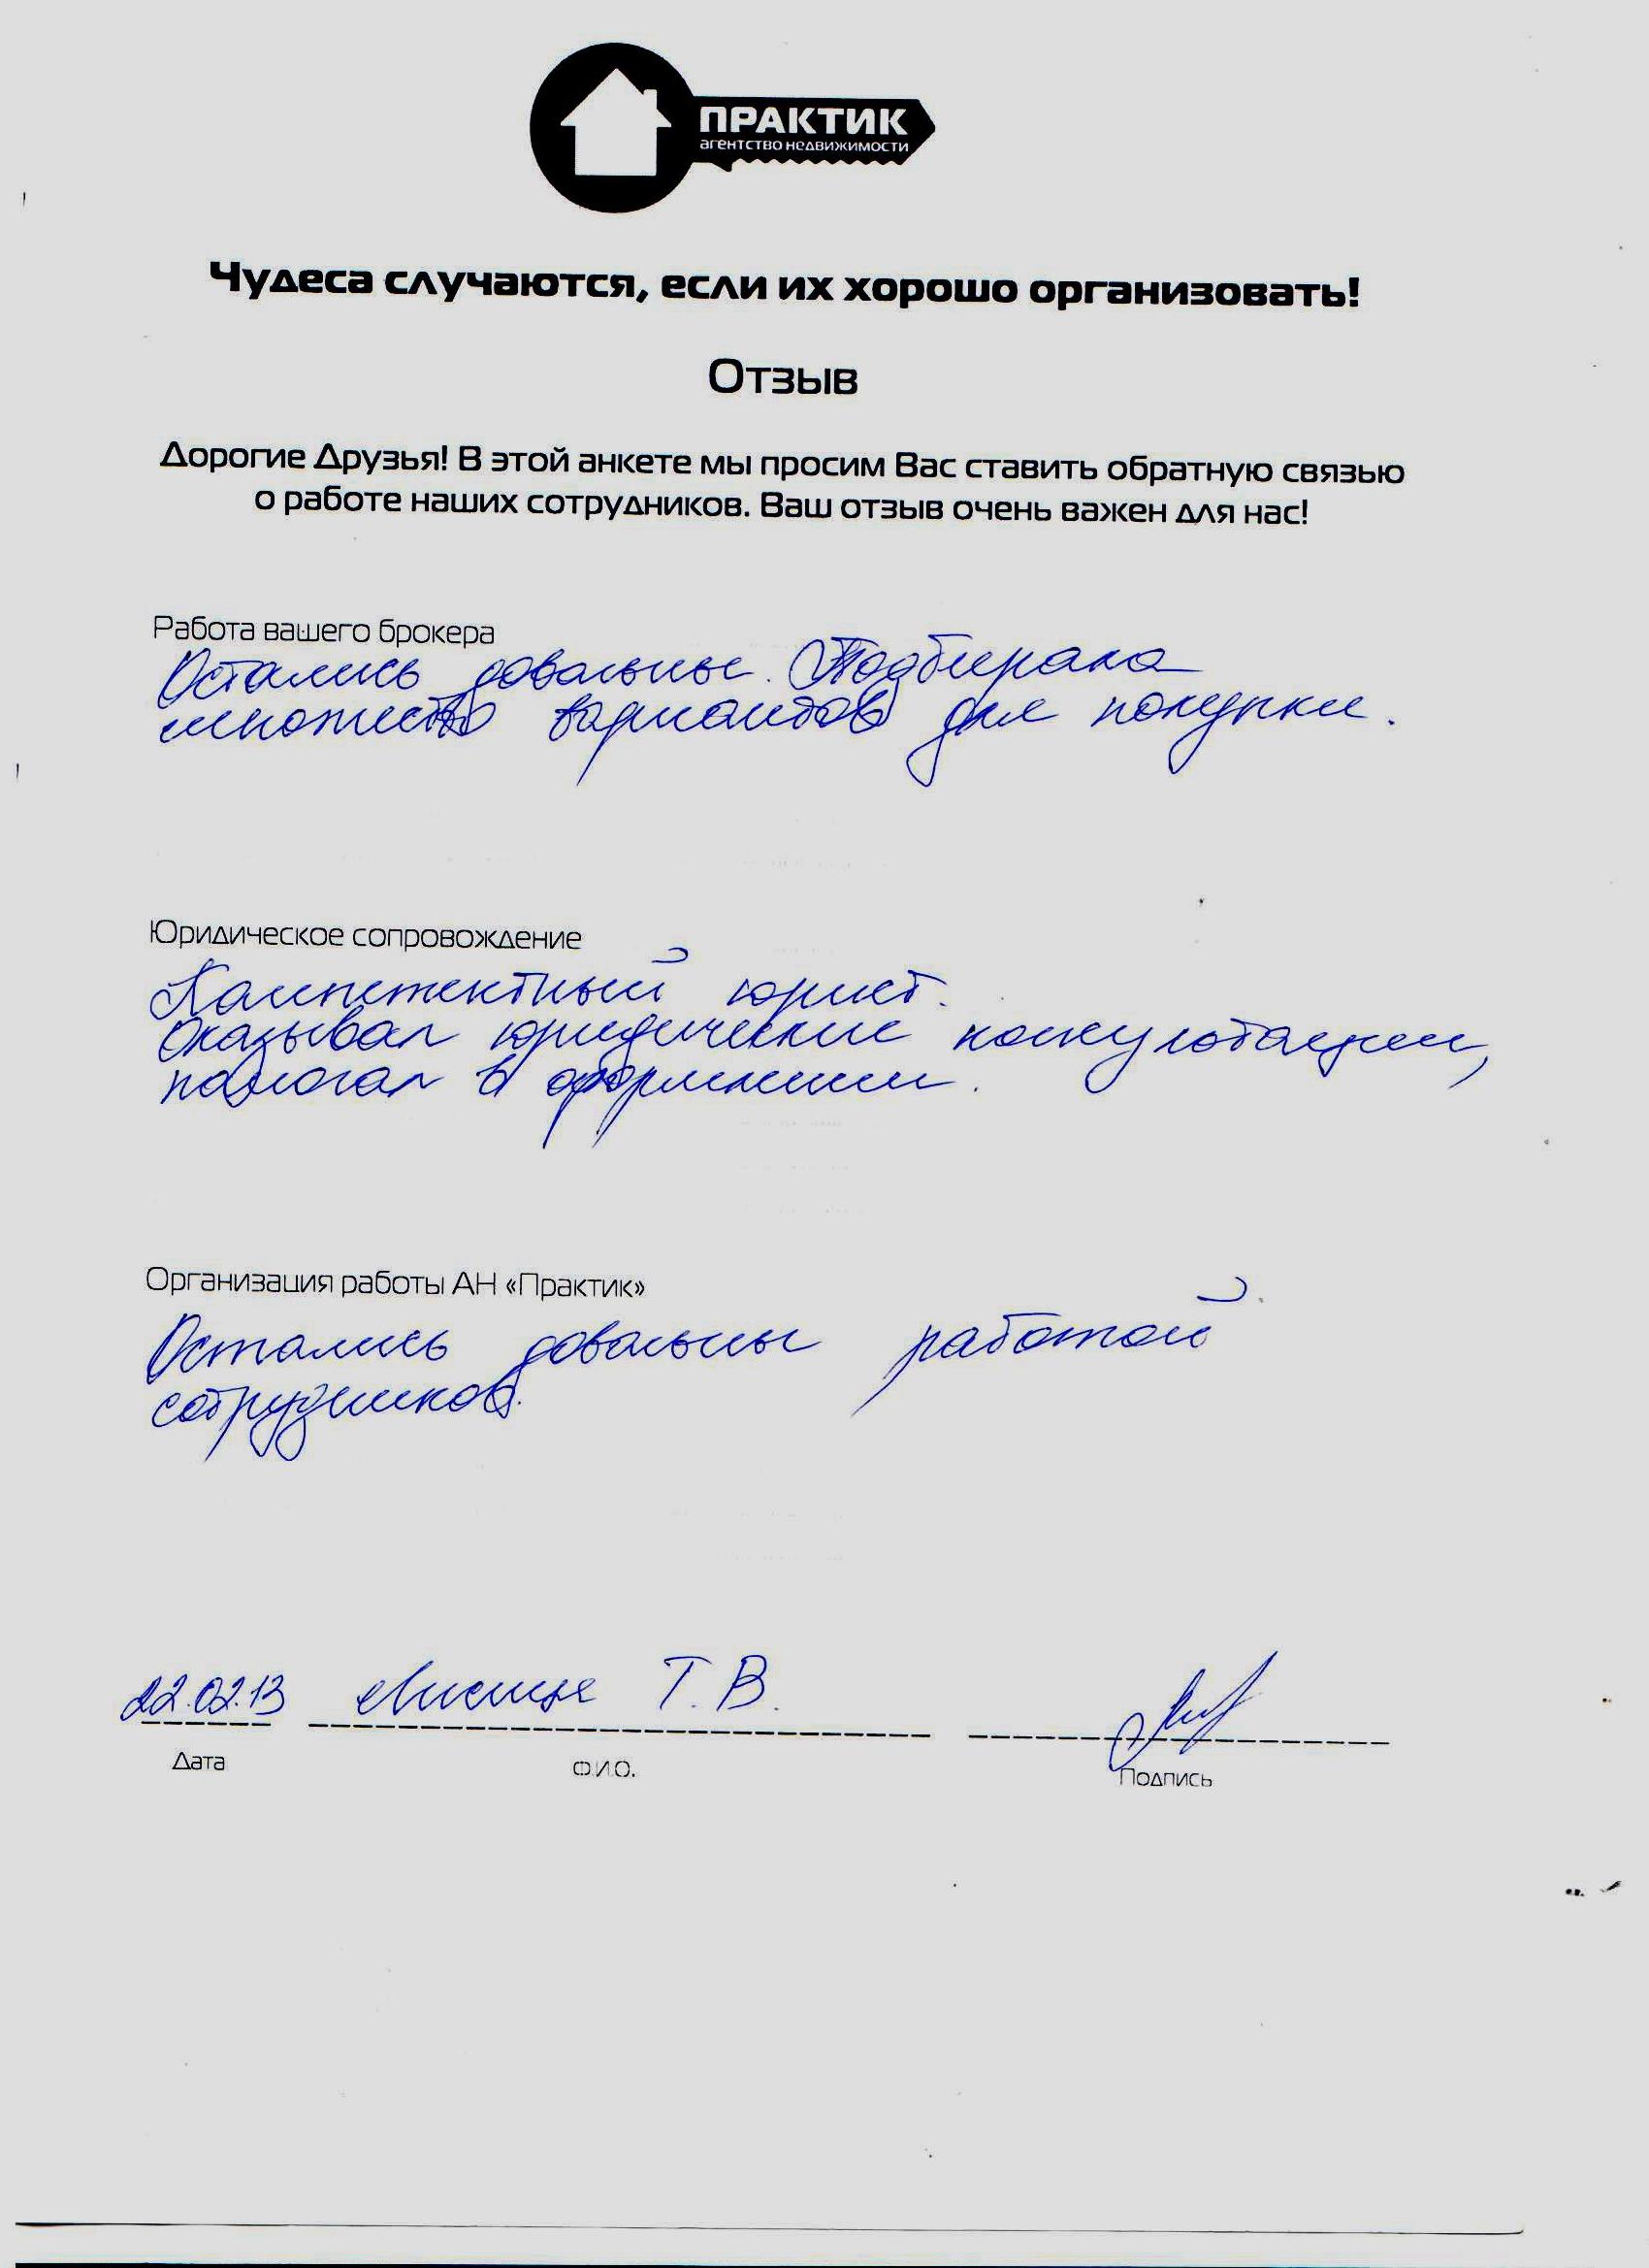 ПРАКТИК
агентство недвижимости
Чудеса случаются, если их хорошо организовать!
Отзыв
Дорогие Друзья! В этой анкете мы просим Вас ставить обратную связью
о работе наших сотрудников. Ваш отзыв очень важен для нас!
Работа вашего брокера
Остались довольны. Подбирала
множество вариантов для покупки.
Юридическое сопровождение
Компетентный юрист.
Оказывал юридические консультации,
помогал в оформлении.
Организация работы АН «Практик»
Остались довольны работой
сотрудников.
22.02.13 Т. В.
Дата Ф.И.О. Подпись